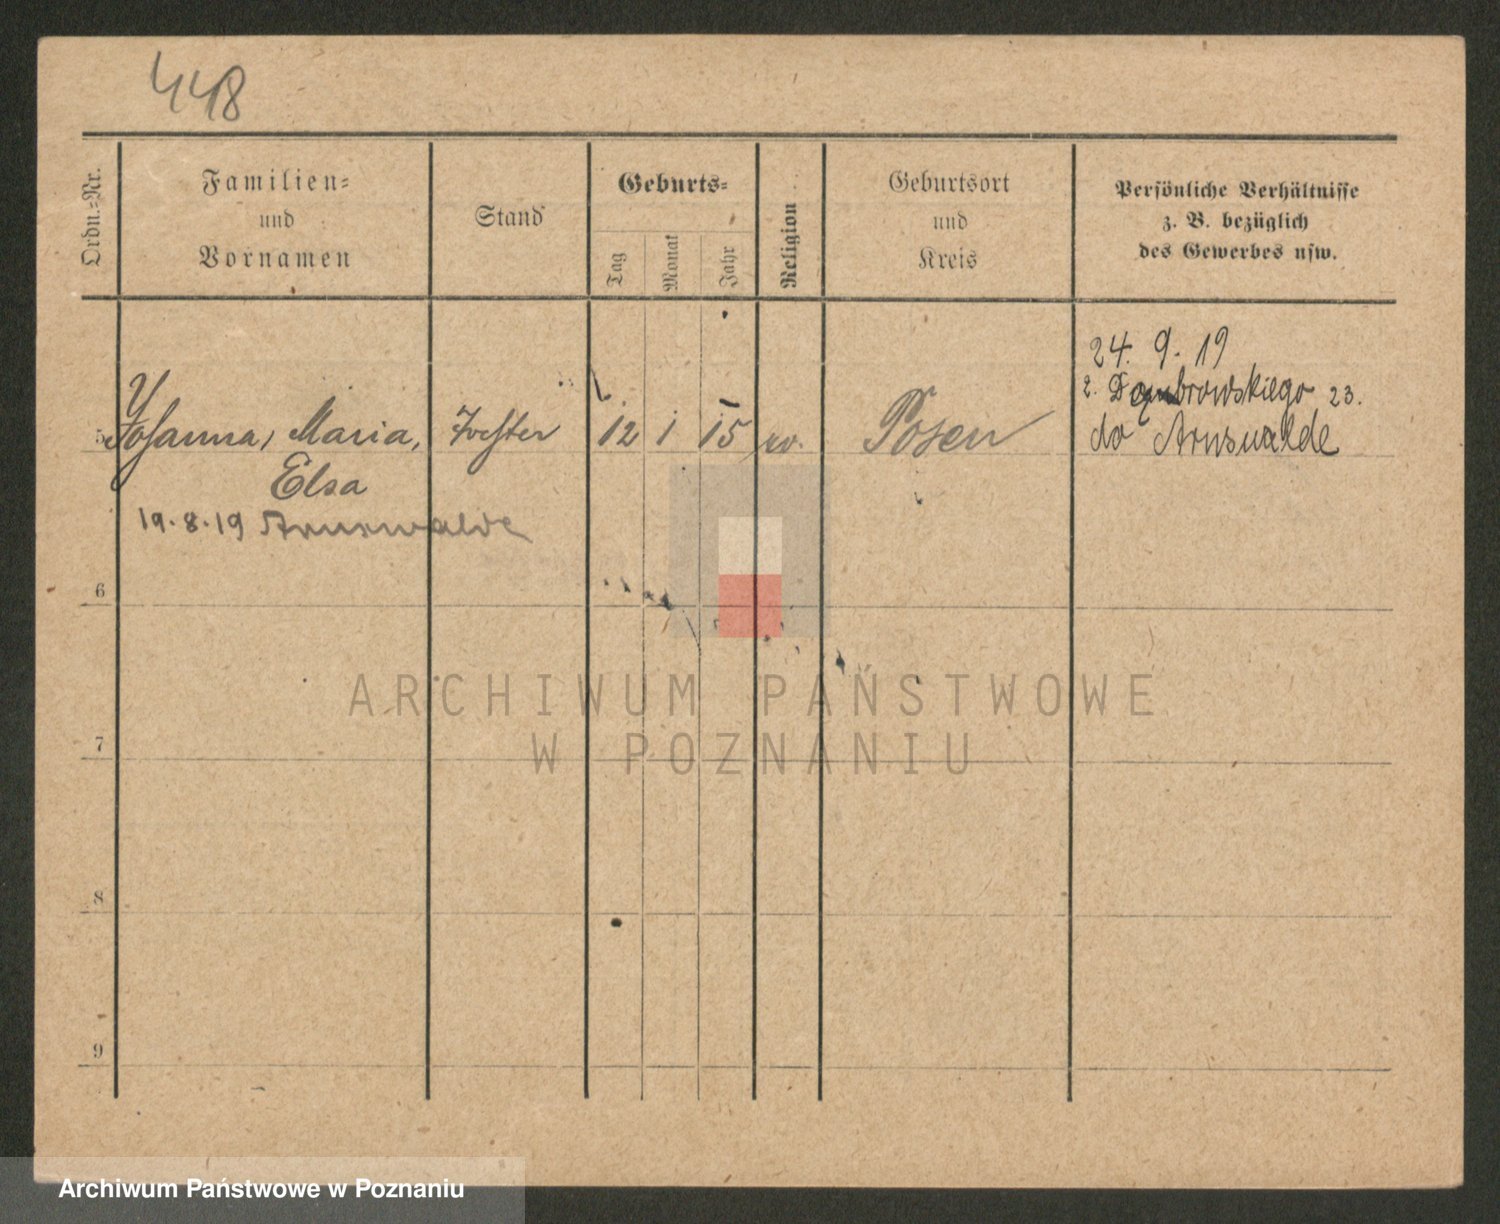 448
Ordn.=Nr.
Familien=
und
Vornamen
Stand
Geburts=
Tag
Monat
Jahr
Religion
Geburtsort
und
Kreis
Persönliche Verhältnisse
z. B. bezüglich
des Gewerbes usw.
24. 9. 19
z. Dąmbrowskiego 23.
do Arnswalde
5 Johanna, Maria, 12 1 15 ev. Posen
Elsa
19.8.19 Arnswalde
6
7
8
9
ARCHIWUM PAŃSTWOWE
W POZNANIU
Archiwum Państwowe w Poznaniu